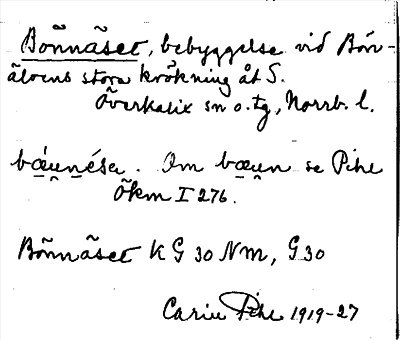 Bönnäset, bebyggelse vid Bön-
älvens stora krökning åt S.
Överkalix sn o. tg, Norrb. l.
bœ́u̯nése̱. Om bœu̯n se Pihl
Ökm I 276.
Bönnäset K G 30 NM, G 30
Carin Pihl 1919-27